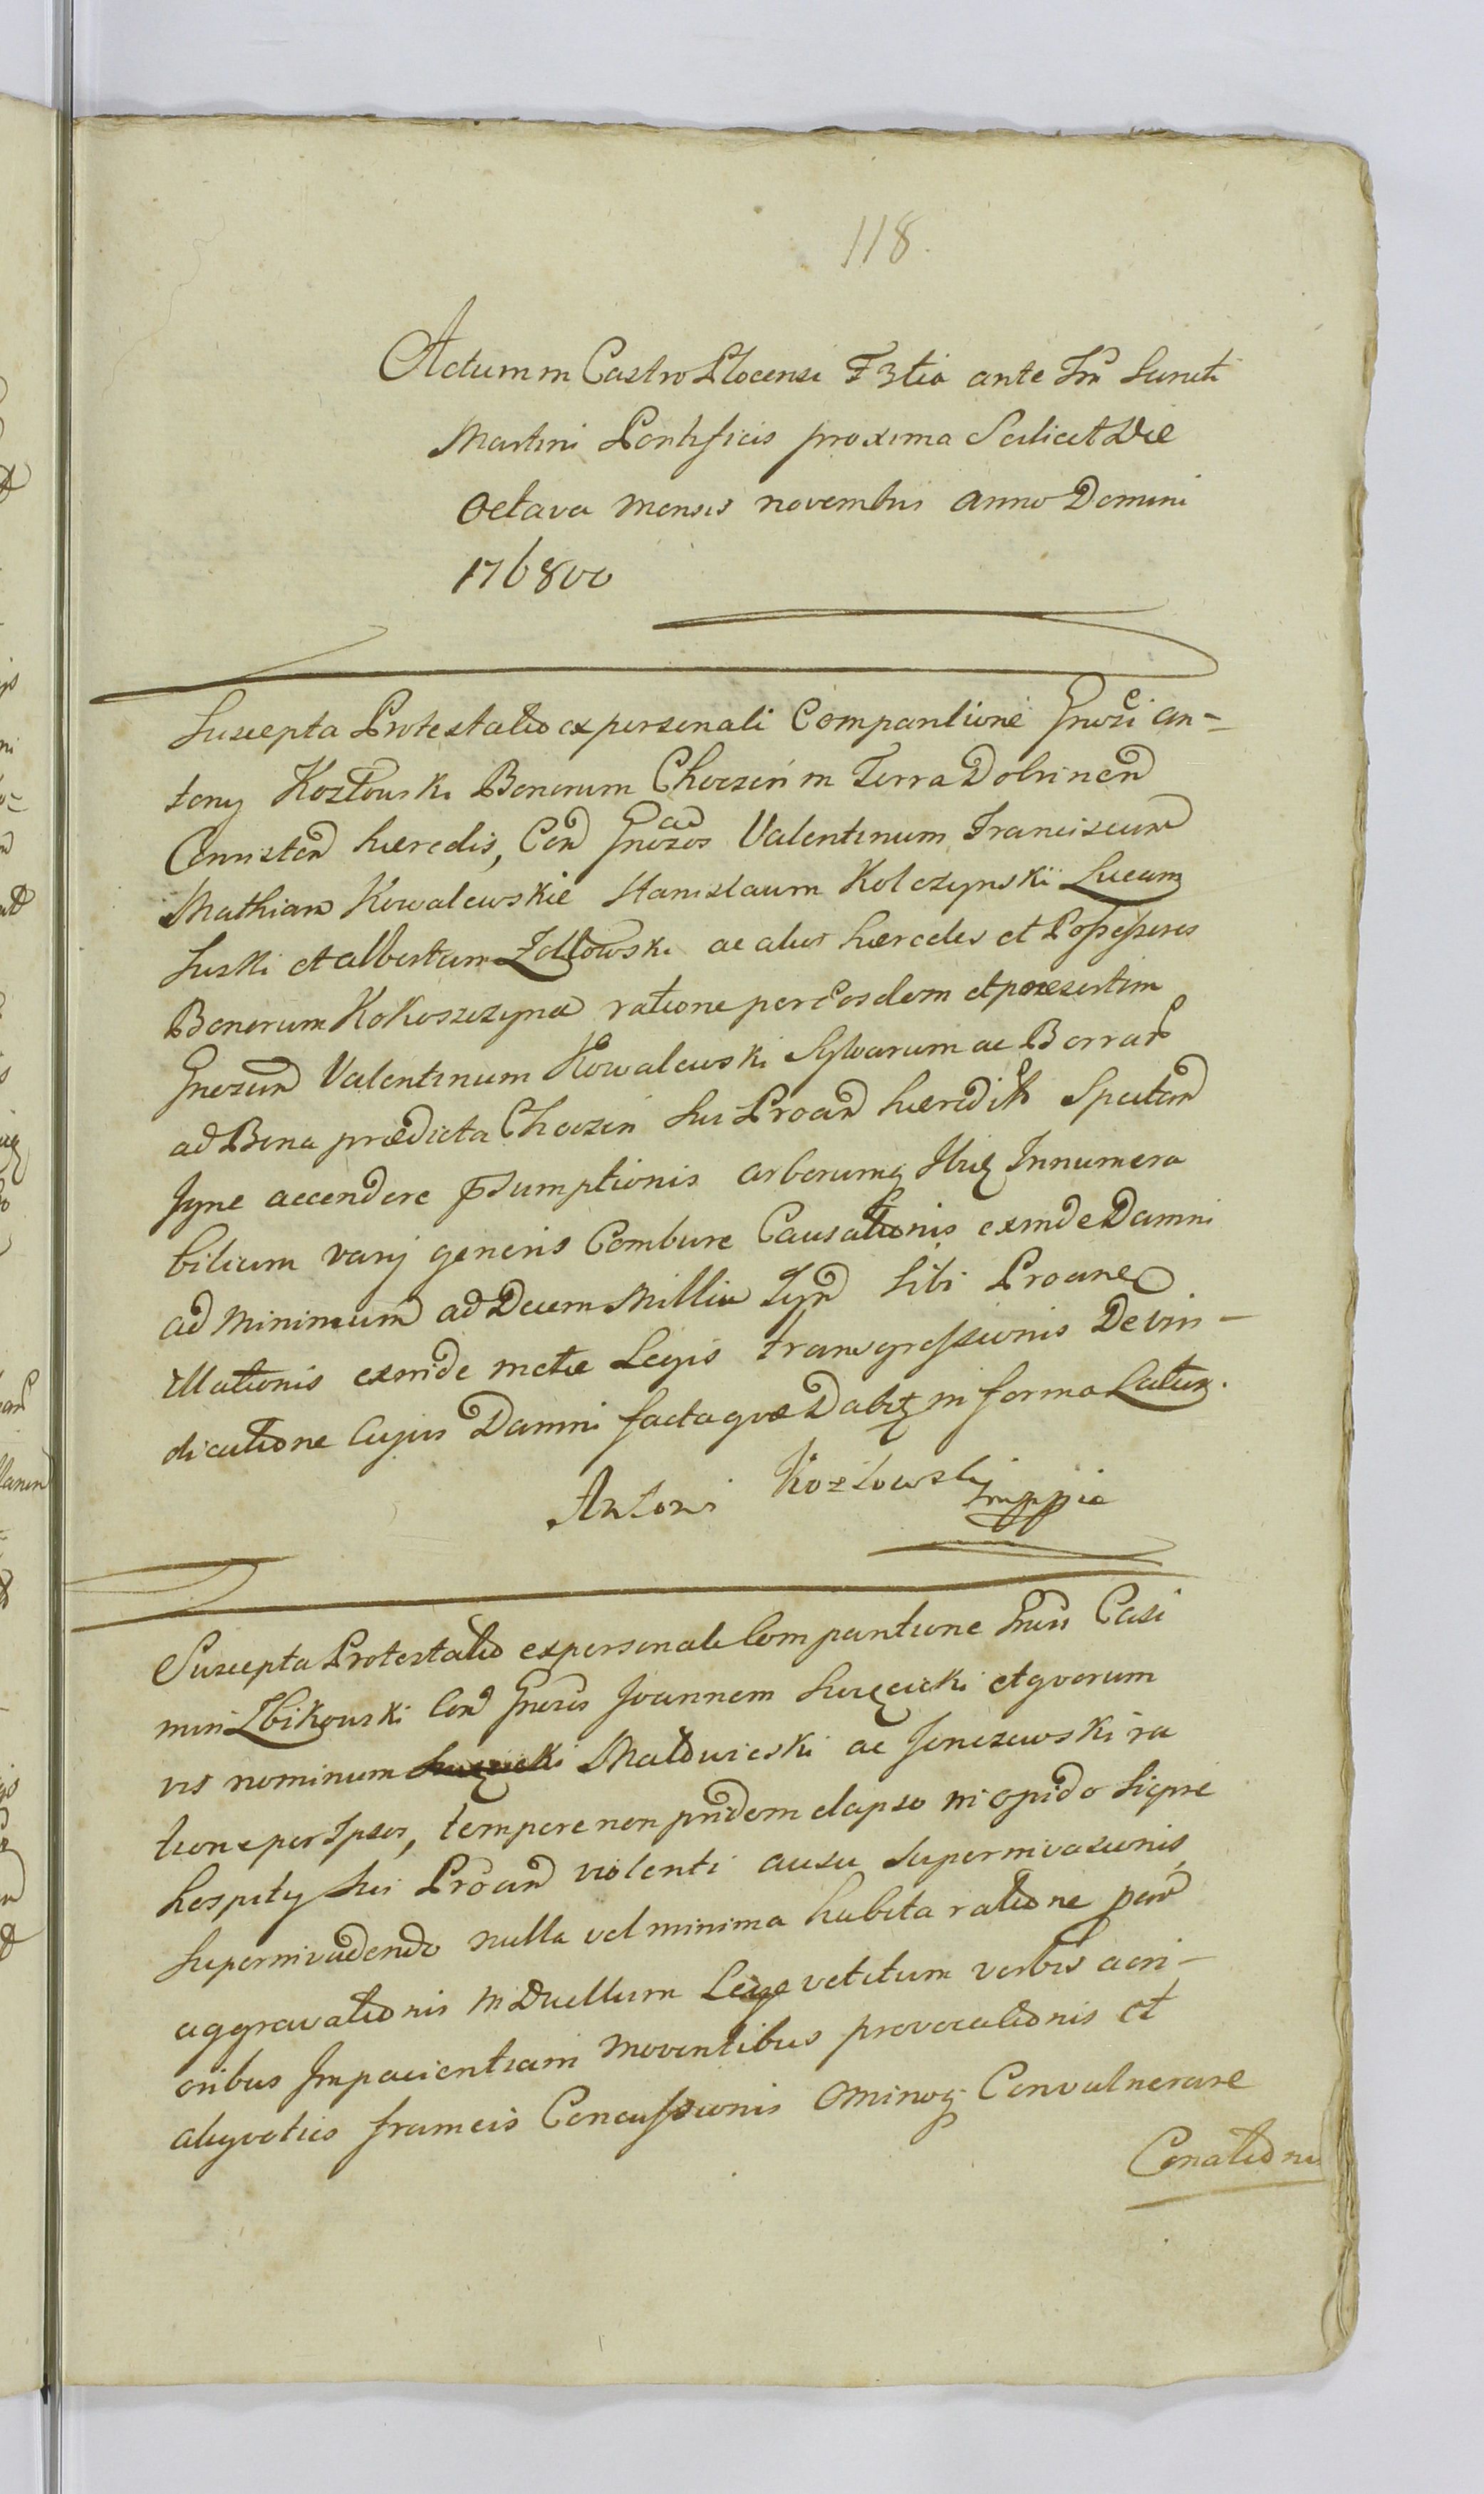 118.
Actum in Castro Plocensi F 3tia ante Fm Sancti
Martini Pontificis proxima Scilicet Die
Octava mensis novembris anno Domini
1768vo
Suscepta Protestatio ex personali Compantione Gnosi an-
tony Kozłowski Bonorum Choczeń in Terra Dobrinen
Consisten hæredis, Con Gnosos Valentinum Franciscum
ac
Mathiam Kowalewskie Stanislaum Kolczynski Lucam
Suski et albertum Zołtowski ac alios hæredes et Possessores
Bonorum Kokoszczyna ratione per Eosdem et præsertim
Gnosum Valentinum Kowalewski Sylvarum ac Borrar
ad Bona prædicta Choczen sui Proan hæredit Spectan
Igne accendere Psumptionis arborumq Ibiq Innumera
bilium varij generis Combure Causationis exinde Damni
ad minimum ad Decem Millia Fpn sibi Proane
Illationis exinde metæ Legis transgressionis De vin-
dicatione Cujus Damni facta qvæ Dabit in forma Latiu.
Antoni Kozłowski mppia
Suscepta Protestatio ex personali Compantione Gnsi Casi
miri Zbikowski Con Gnosos Joannem Suięcicki et qvorum
vis nominum Małowieski ac Jenczewski ra
tione per Ipsos, tempore non pridem elapso in opido Siepre
hospity sui Proan violenti ausu superinvasionis,
superinvadendo nulla vel minima habita ratione par
aggravationis in Duellum Lege vetitum verbis acri-
oribus Impacientiam moventibus provocationis et
aliqvoties frameis Concussionis Ominoq Convulnerare
Conationis